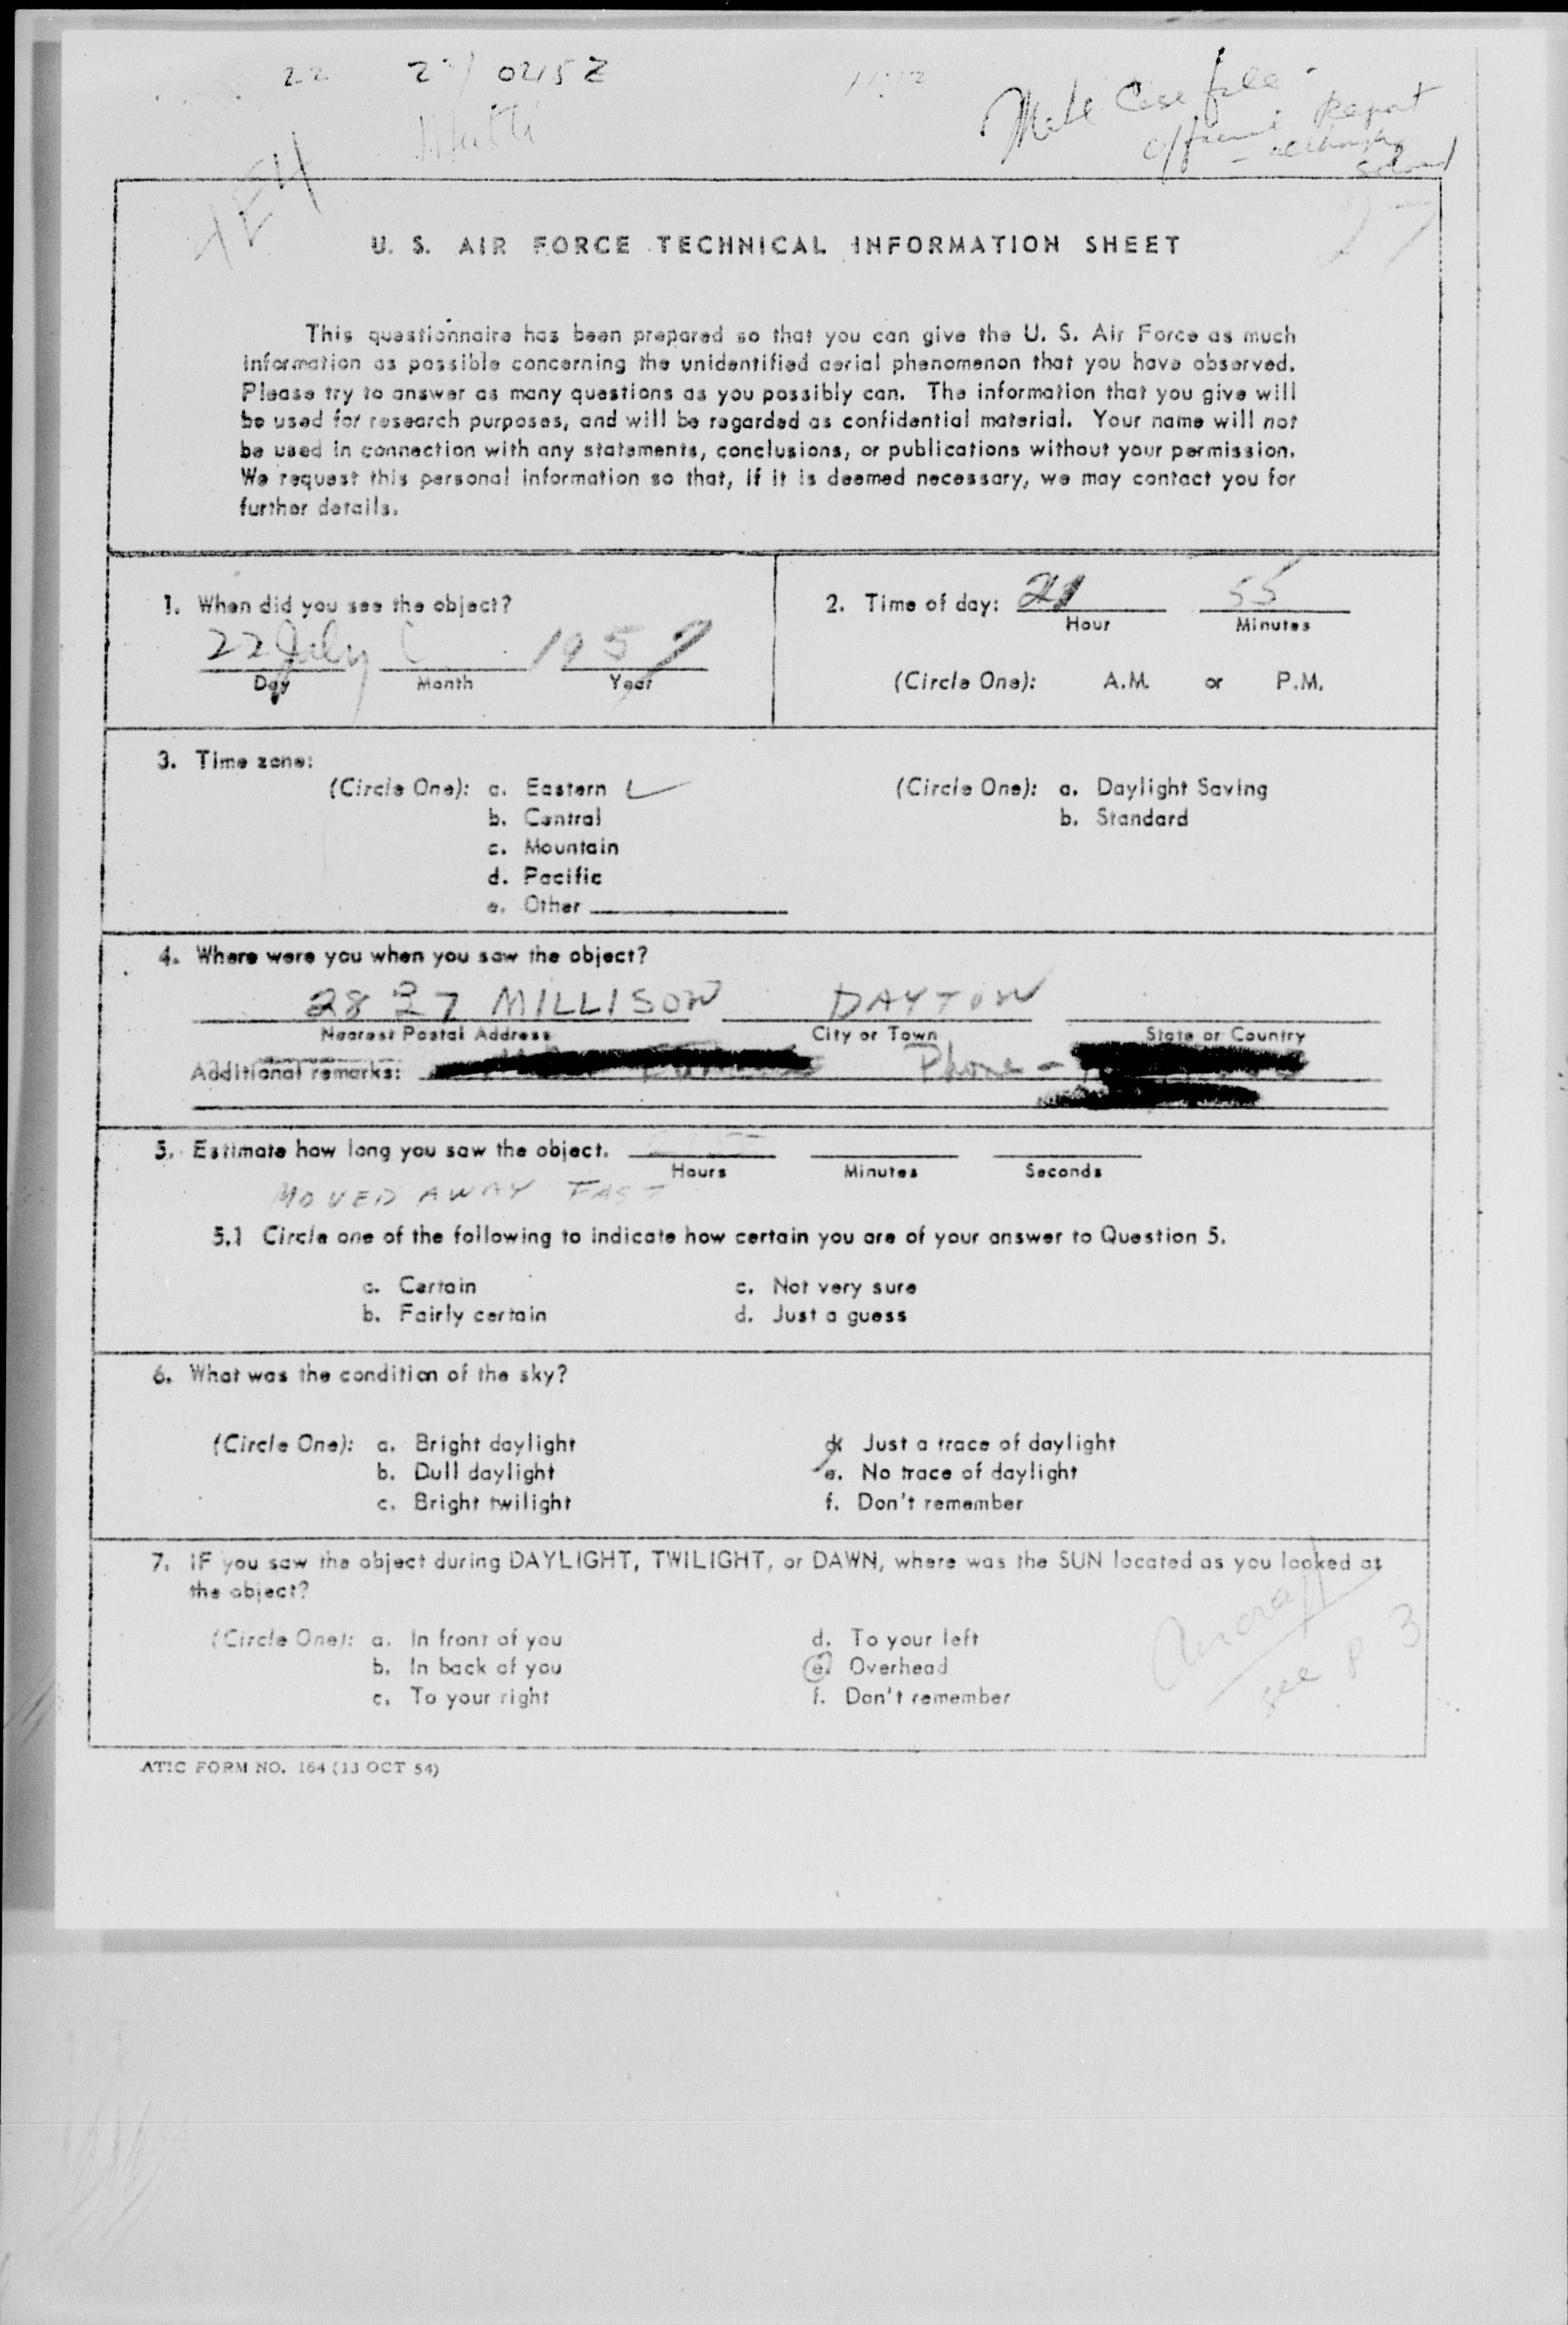 22 23/0215Z
Make Case file
Report
U. S. AIR FORCE TECHNICAL INFORMATION SHEET
This questionnaire has been prepared so that you can give the U. S. Air Force as much
information as possible concerning the unidentified aerial phenomenon that you have observed.
Please try to answer as many questions as you possibly can. The information that you give will
be used for research purposes, and will be regarded as confidential material. Your name will not
be used in connection with any statements, conclusions, or publications without your permission.
We request this personal information so that, if it is deemed necessary, we may contact you for
further details.
1. When did you see the object?
22 July 1957
Day Month Year
2. Time of day: 21 55
Hour Minutes
(Circle One): A.M. or P.M.
3. Time zone:
(Circle One): a. Eastern (Circle One): a. Daylight Saving
b. Central b. Standard
c. Mountain
d. Pacific
e. Other
4. Where were you when you saw the object?
2827 MILLISON DAYTON
Nearest Postal Address City or Town State or Country
Additional remarks: Phone -
5. Estimate how long you saw the object.
Hours Minutes Seconds
MOVED AWAY FAST
5.1 Circle one of the following to indicate how certain you are of your answer to Question 5.
a. Certain c. Not very sure
b. Fairly certain d. Just a guess
6. What was the condition of the sky?
(Circle One): a. Bright daylight d. Just a trace of daylight
b. Dull daylight e. No trace of daylight
c. Bright twilight f. Don't remember
7. IF you saw the object during DAYLIGHT, TWILIGHT, or DAWN, where was the SUN located as you looked at
the object?
(Circle One): a. In front of you d. To your left
b. In back of you e. Overhead
c. To your right f. Don't remember
Aircraft
see p. 3
ATIC FORM NO. 164 (13 OCT 54)